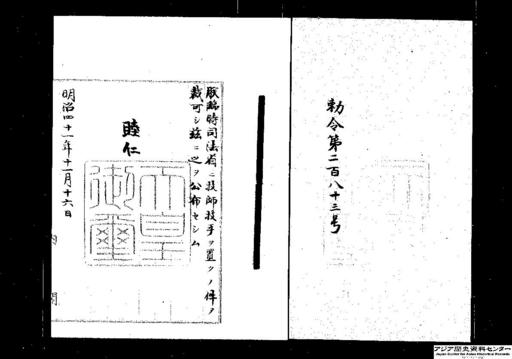 勅令第二百八十三号
朕臨時司法省ニ技師技手ヲ置クノ件ヲ
裁可シ茲ニ之ヲ公布セシム
睦仁
天皇御璽
明治四十一年十一月十六日
内閣
アジア歴史資料センター
Japan Center for Asian Historical Records